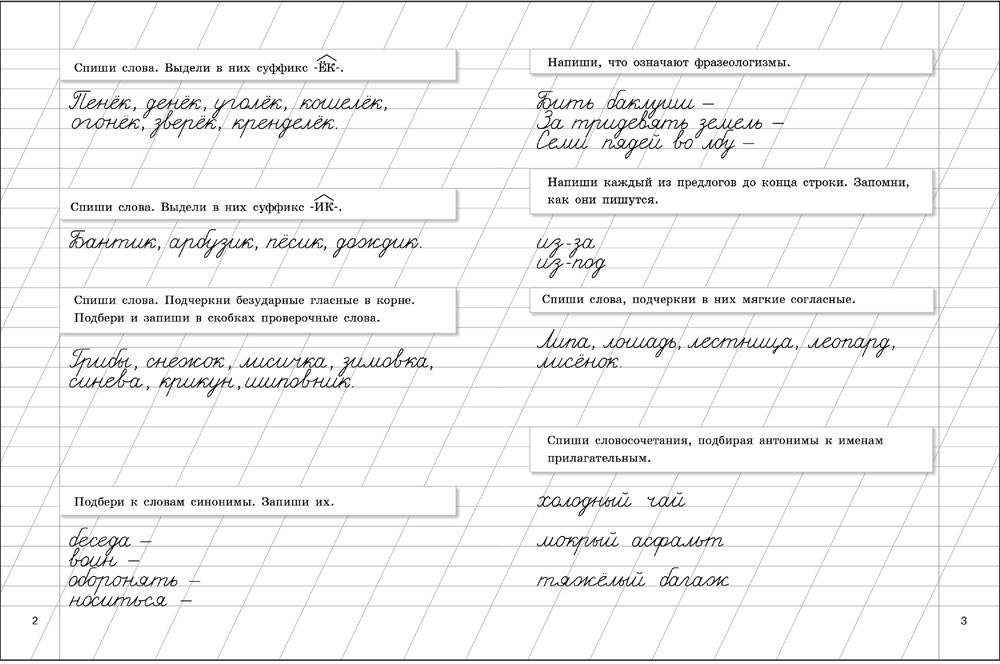 Спиши слова. Выдели в них суффикс -ЁК-.
Пенёк, денёк, уголёк, кошелёк,
огонёк, зверёк, кренделёк.
Спиши слова. Выдели в них суффикс -ИК-.
Бантик, арбузик, пёсик, дождик.
Спиши слова. Подчеркни безударные гласные в корне.
Подбери и запиши в скобках проверочные слова.
Грибы, снежок, лисичка, зимовка,
синева, крикун, шиповник.
Подбери к словам синонимы. Запиши их.
беседа –
воин –
оборонять –
носиться –
2
Напиши, что означают фразеологизмы.
Бить баклуши –
За тридевять земель –
Семи пядей во лбу –
Напиши каждый из предлогов до конца строки. Запомни,
как они пишутся.
из-за
из-под
Спиши слова, подчеркни в них мягкие согласные.
Липа, лошадь, лестница, леопард,
лисёнок.
Спиши словосочетания, подбирая антонимы к именам
прилагательным.
холодный чай
мокрый асфальт
тяжёлый багаж
3